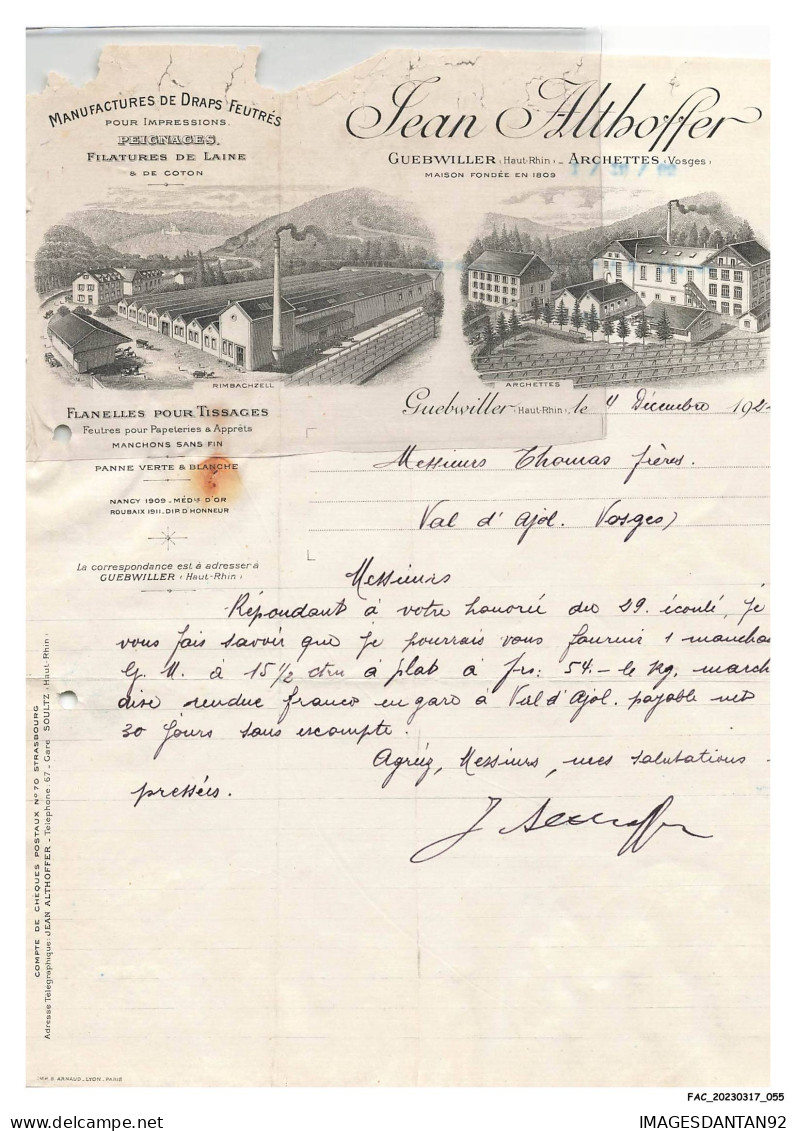 MANUFACTURES DE DRAPS FEUTRÉS
POUR IMPRESSIONS.
PEIGNAGES.
FILATURES DE LAINE
& DE COTON
Jean Althoffer
GUEBWILLER (HAUT-RHIN) _ ARCHETTES (VOSGES)
MAISON FONDÉE EN 1809
RIMBACHZELL
ARCHETTES
FLANELLES POUR TISSAGES
Feutres pour Papeteries & Apprêts
MANCHONS SANS FIN
PANNE VERTE & BLANCHE
NANCY 1909 - MÉDLE D'OR
ROUBAIX 1911. DIP. D'HONNEUR
La correspondance est à adresser à
GUEBWILLER (Haut-Rhin)
Guebwiller (HAUT-RHIN), le 4 Décembre 192
Messieurs Thomas frères.
Val d'Ajol. Vosges)
Messieurs
Répondant à votre honorée du 29. écoulé, je
vous fais savoir que je pourrais vous fournir 1 mancho
G. M. à 15 1/2 ctm à plat à frs: 54.- le kg. march
dise rendue franco en gare à Val d'Ajol. payable net
30 jours sans escompte.
Agréez, Messieurs, mes salutations
pressées.
J Althoffer
COMPTE DE CHÈQUES POSTAUX N° 70 STRASBOURG
Adresse Télégraphique: JEAN ALTHOFFER - Téléphone: 67 - Gare SOULTZ (Haut-Rhin)
IMP. B. ARNAUD_LYON_PARIS
FAC_20230317_055
IMAGESDANTAN92